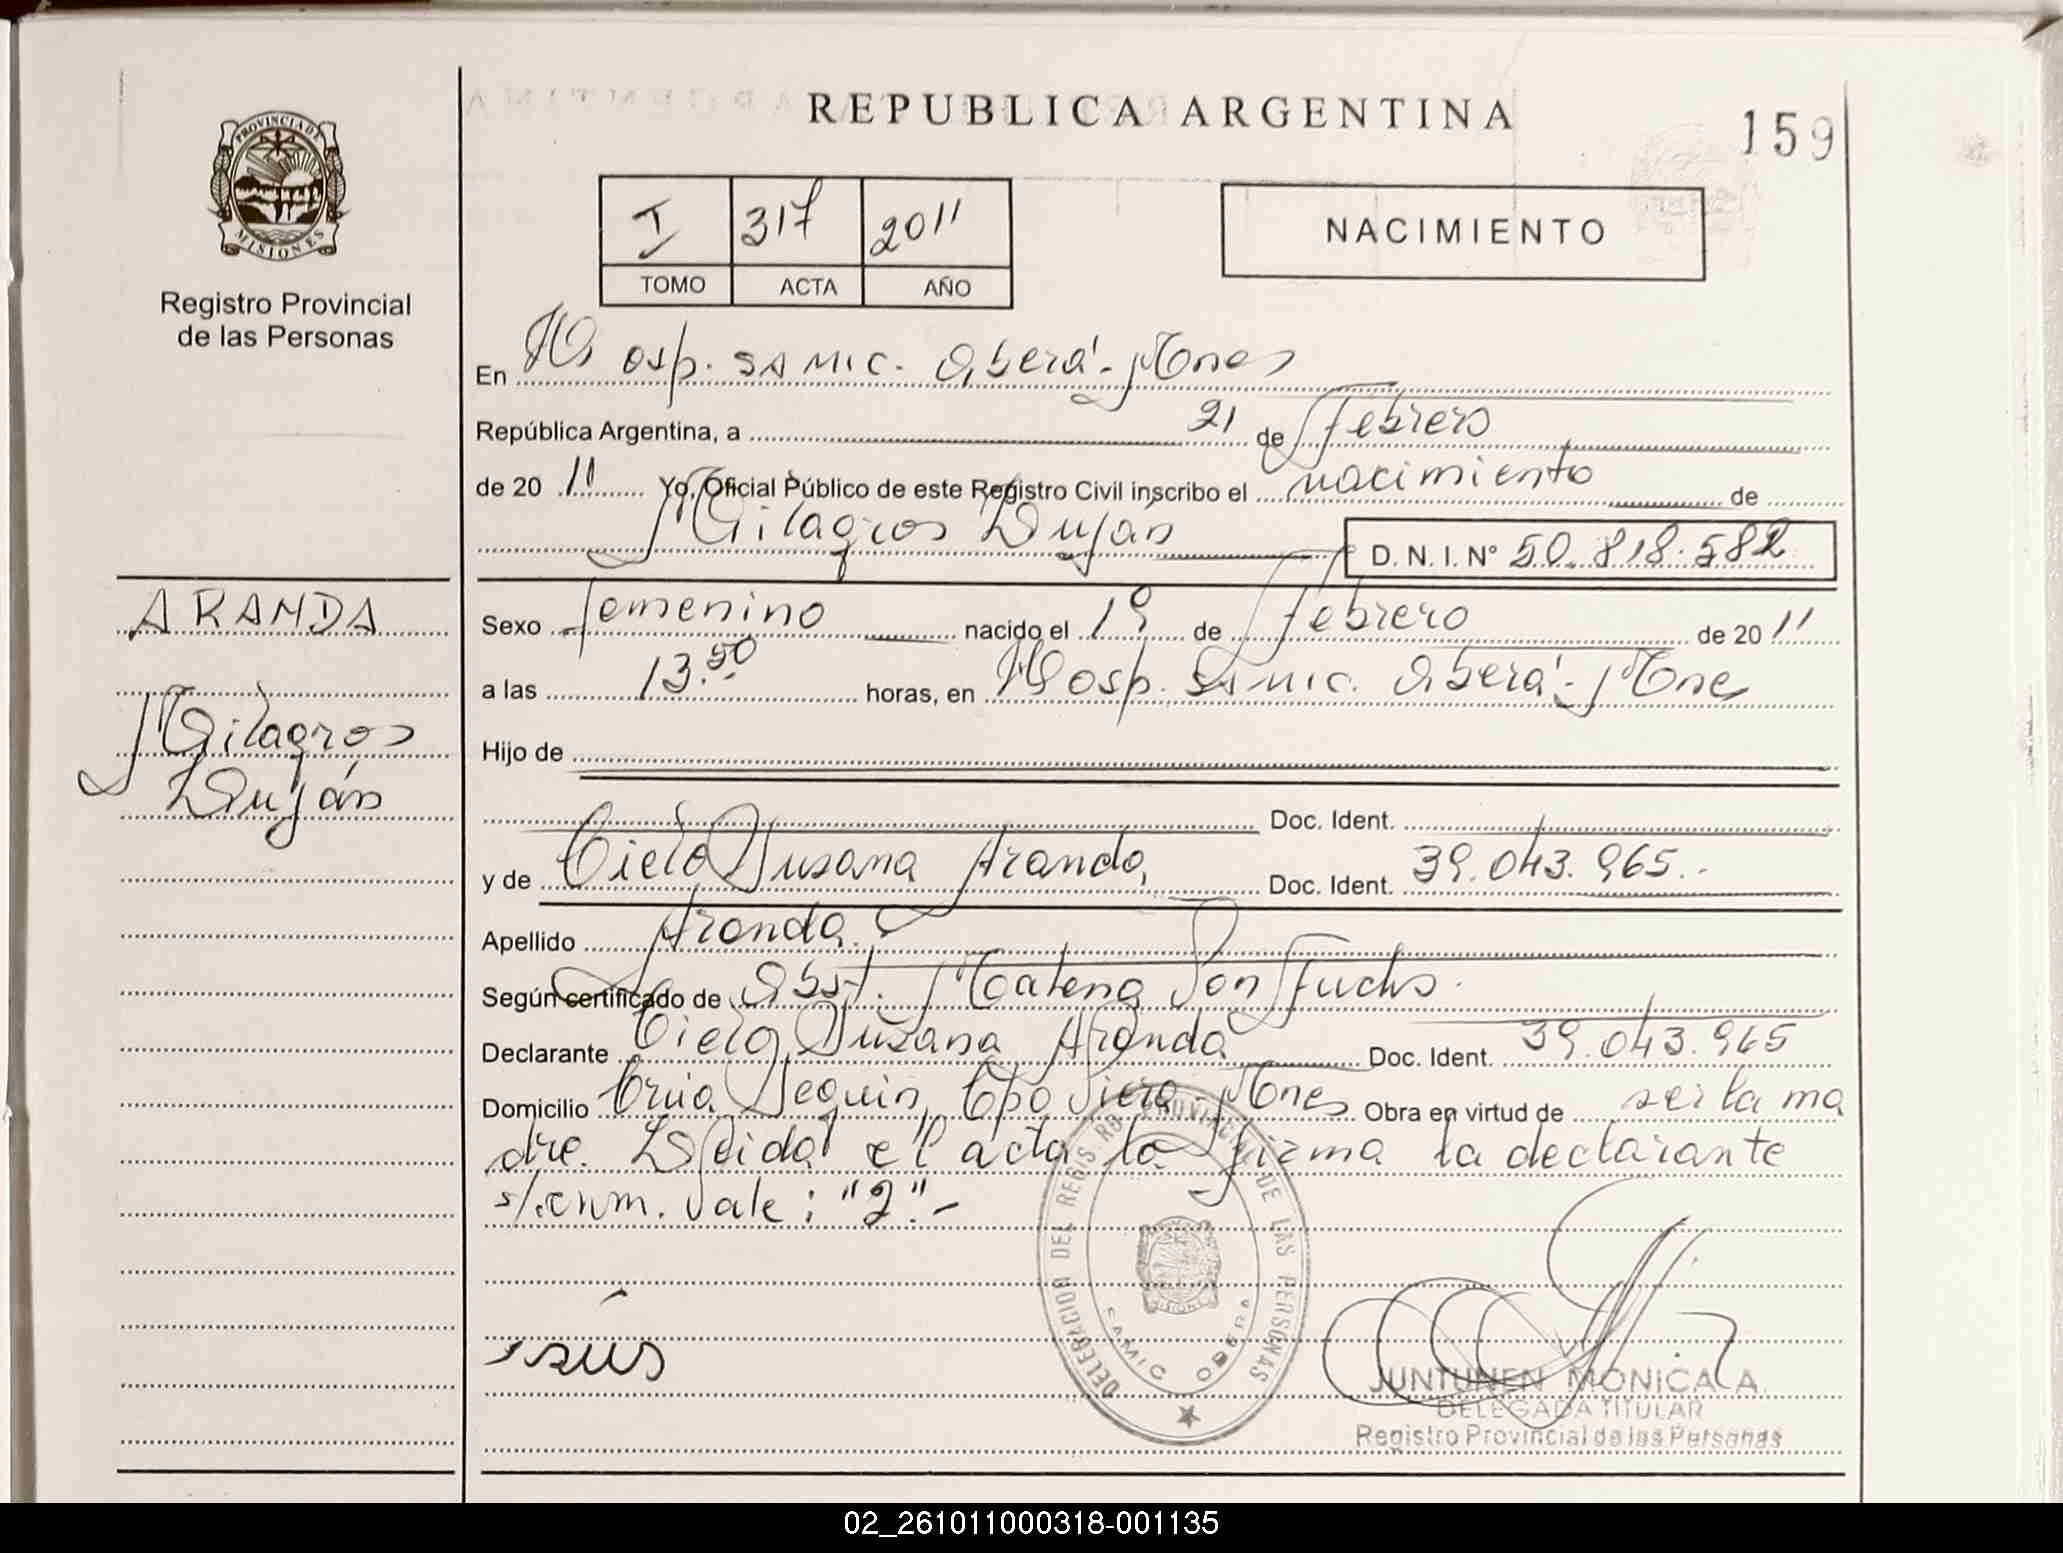 REPUBLICA ARGENTINA
159
PROVINCIA DE MISIONES
Registro Provincial
de las Personas
I 317 2011
TOMO ACTA AÑO
NACIMIENTO
En Hosp. SAMIC. Oberá - Mnes
República Argentina, a 21 de febrero
de 20 11 Yo, Oficial Público de este Registro Civil inscribo el nacimiento de
Milagros Luján D. N. I. N° 50.818.582
ARANDA
Milagros
Luján
Sexo femenino nacido el 19 de febrero de 20 11
a las 13.50 horas, en Hosp. Samic. Oberá - Mnes
Hijo de
Doc. Ident.
y de Cielo Susana Aranda Doc. Ident. 39.043.965.-
Apellido Aranda
Según certificado de Obst. Fuchs.
Declarante Cielo Susana Aranda Doc. Ident. 39.043.965
Domicilio Seguin, Mnes Obra en virtud de ser la ma
dre. Leida el acta la firma la declarante
s/enm. Vale: "2".-
DELEGACION DEL REGISTRO PROVINCIAL DE LAS PERSONAS
SAMIC OBERA
MISIONES
JUNTUNEN MONICA A.
DELEGADA TITULAR
Registro Provincial de las Personas
02_261011000318-001135